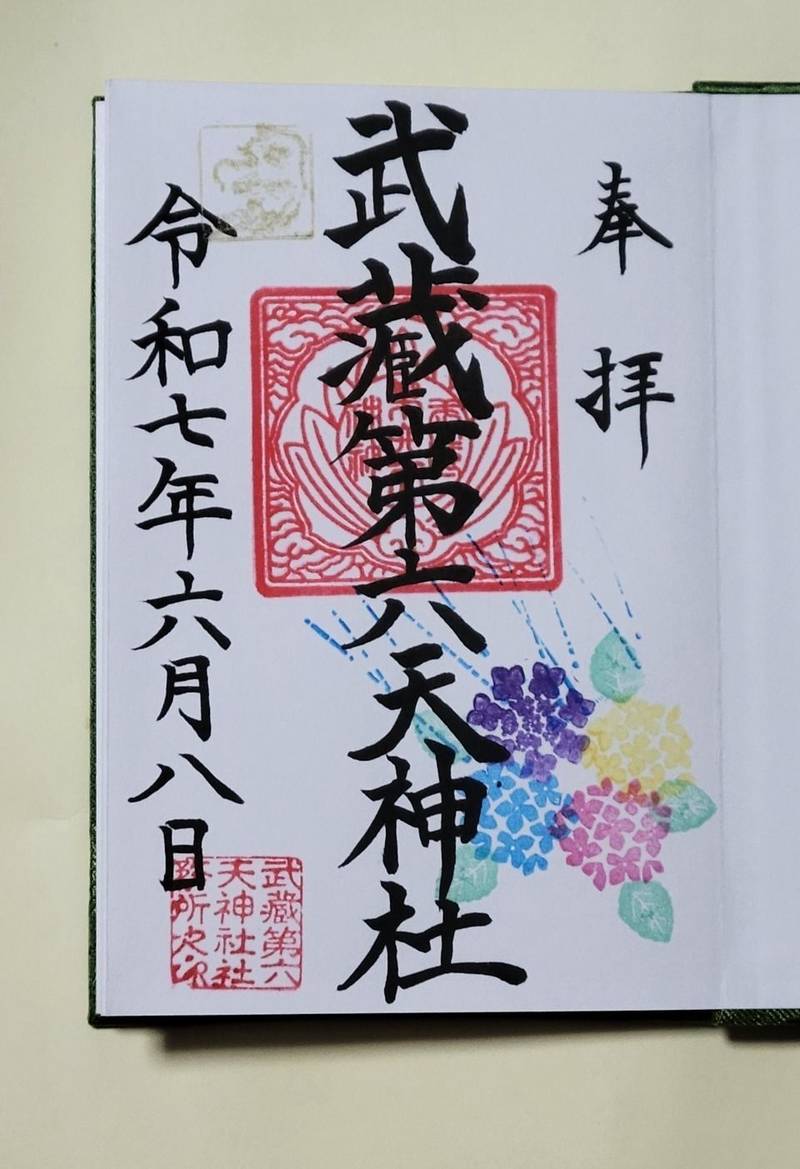 奉拝
武蔵第六天神社
令和七年六月八日
武蔵第六
天神社社